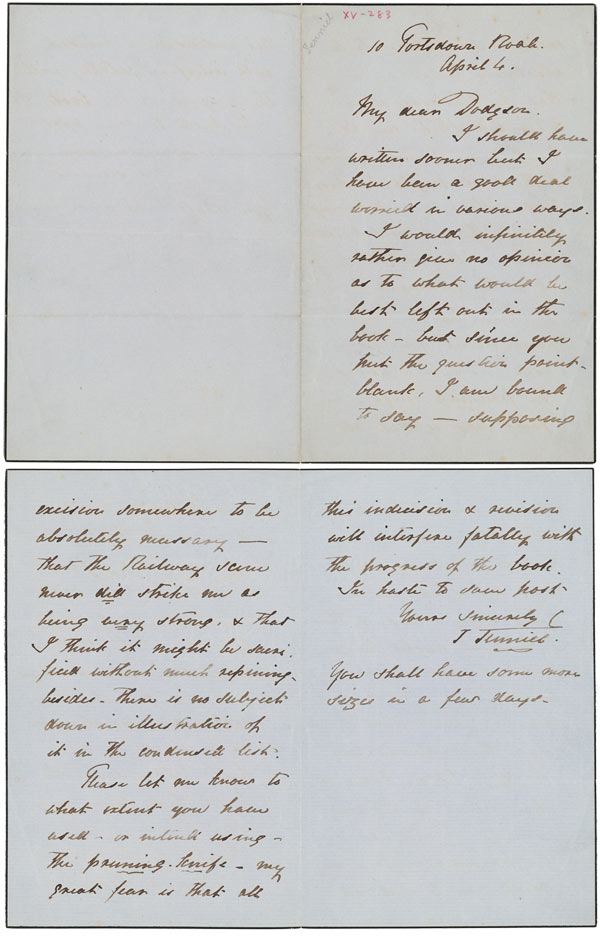 Tenniel
XV-283
10 Portsdown Road.
April 4.
My dear Dodgson.
I should have
written sooner but I
have been a good deal
worried in various ways.
I would infinitely
rather give no opinion
as to what would be
best left out in the
book - but since you
put the question point-
blank, I am bound
to say — supposing
excision somewhere to be
absolutely necessary —
that the Railway scene
never did strike me as
being very strong, & that
I think it might be sacri-
ficed without much repining -
besides - there is no subject
down in illustration of
it in the condensed list.
Please let me know to
what extent you have
used - or intend using -
the pruning-knife - my
great fear is that all
this indecision & revision
will interfere fatally with
the progress of the book.
In haste to save post
Yours sincerely
J Tenniel.
You shall have some more
sizes in a few days -